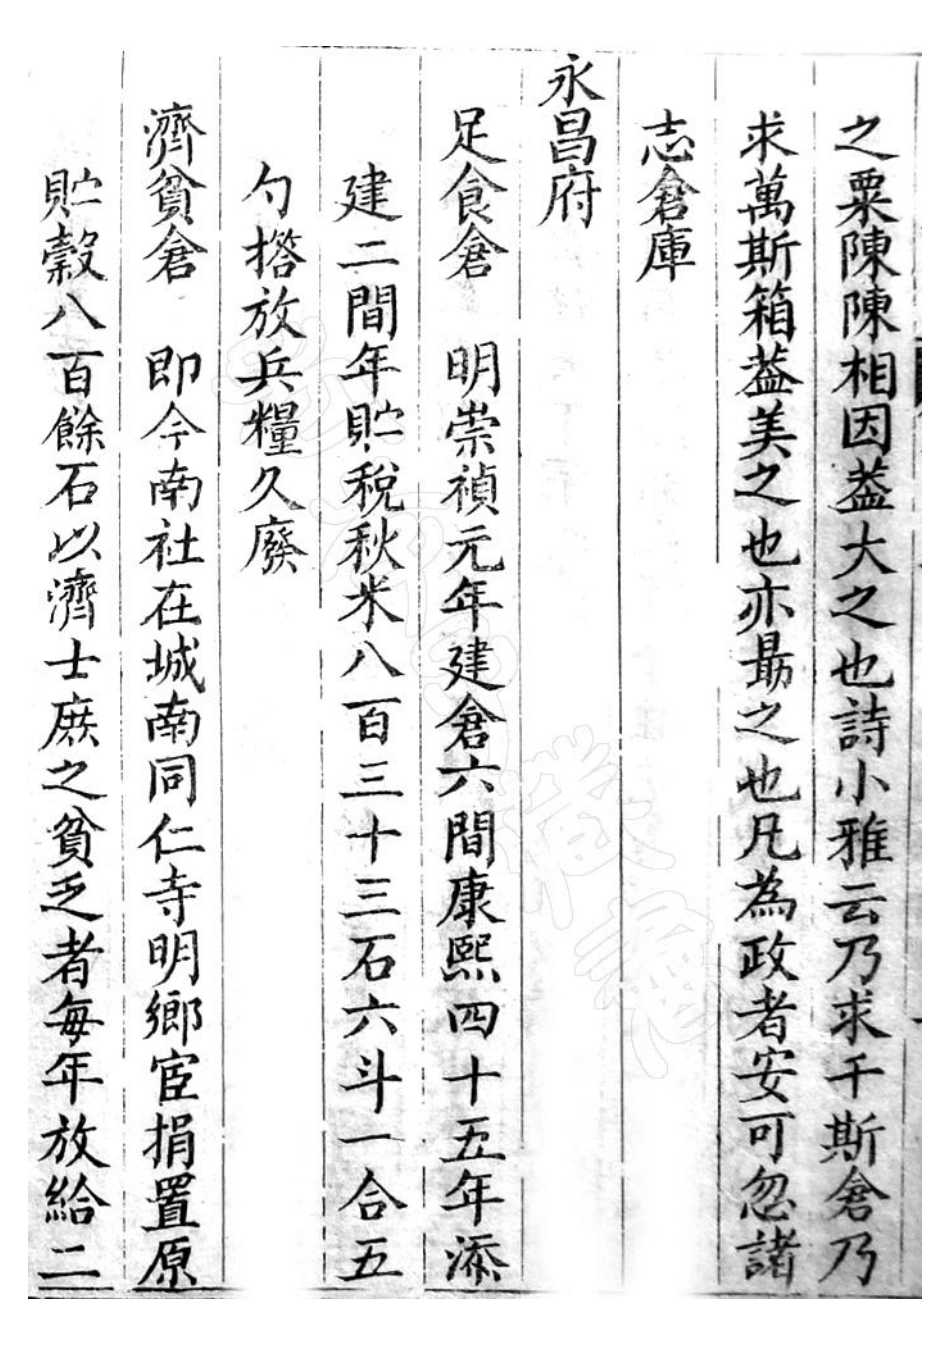 之粟陳陳相因葢大之也詩小雅云乃求千斯倉乃
求萬斯箱葢美之也亦朂之也凡為政者安可忽諸
志倉庫
永昌府
足食倉　明崇禎元年建倉六間康熙四十五年添
建二間年貯税秋米八百三十三石六斗一合五
勺撘放兵糧久廢
濟貧倉　即今南社在城南同仁寺明鄉宦捐置原
貯糓八百餘石以濟士庶之貧乏者每年放給二